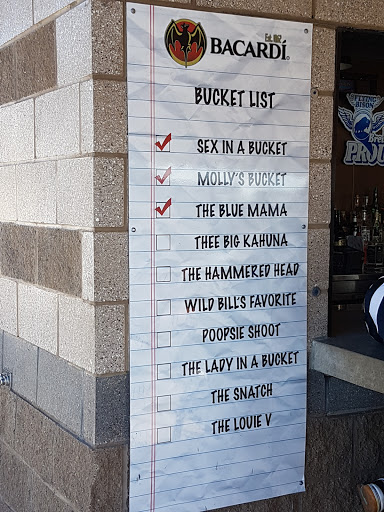 Est. 1862
BACARDÍ
BUCKET LIST
SEX IN A BUCKET
MOLLY'S BUCKET
THE BLUE MAMA
THEE BIG KAHUNA
THE HAMMERED HEAD
WILD BILL'S FAVORITE
POOPSIE SHOOT
THE LADY IN A BUCKET
THE SNATCH
THE LOUIE V
FLYING
BISON
PROU